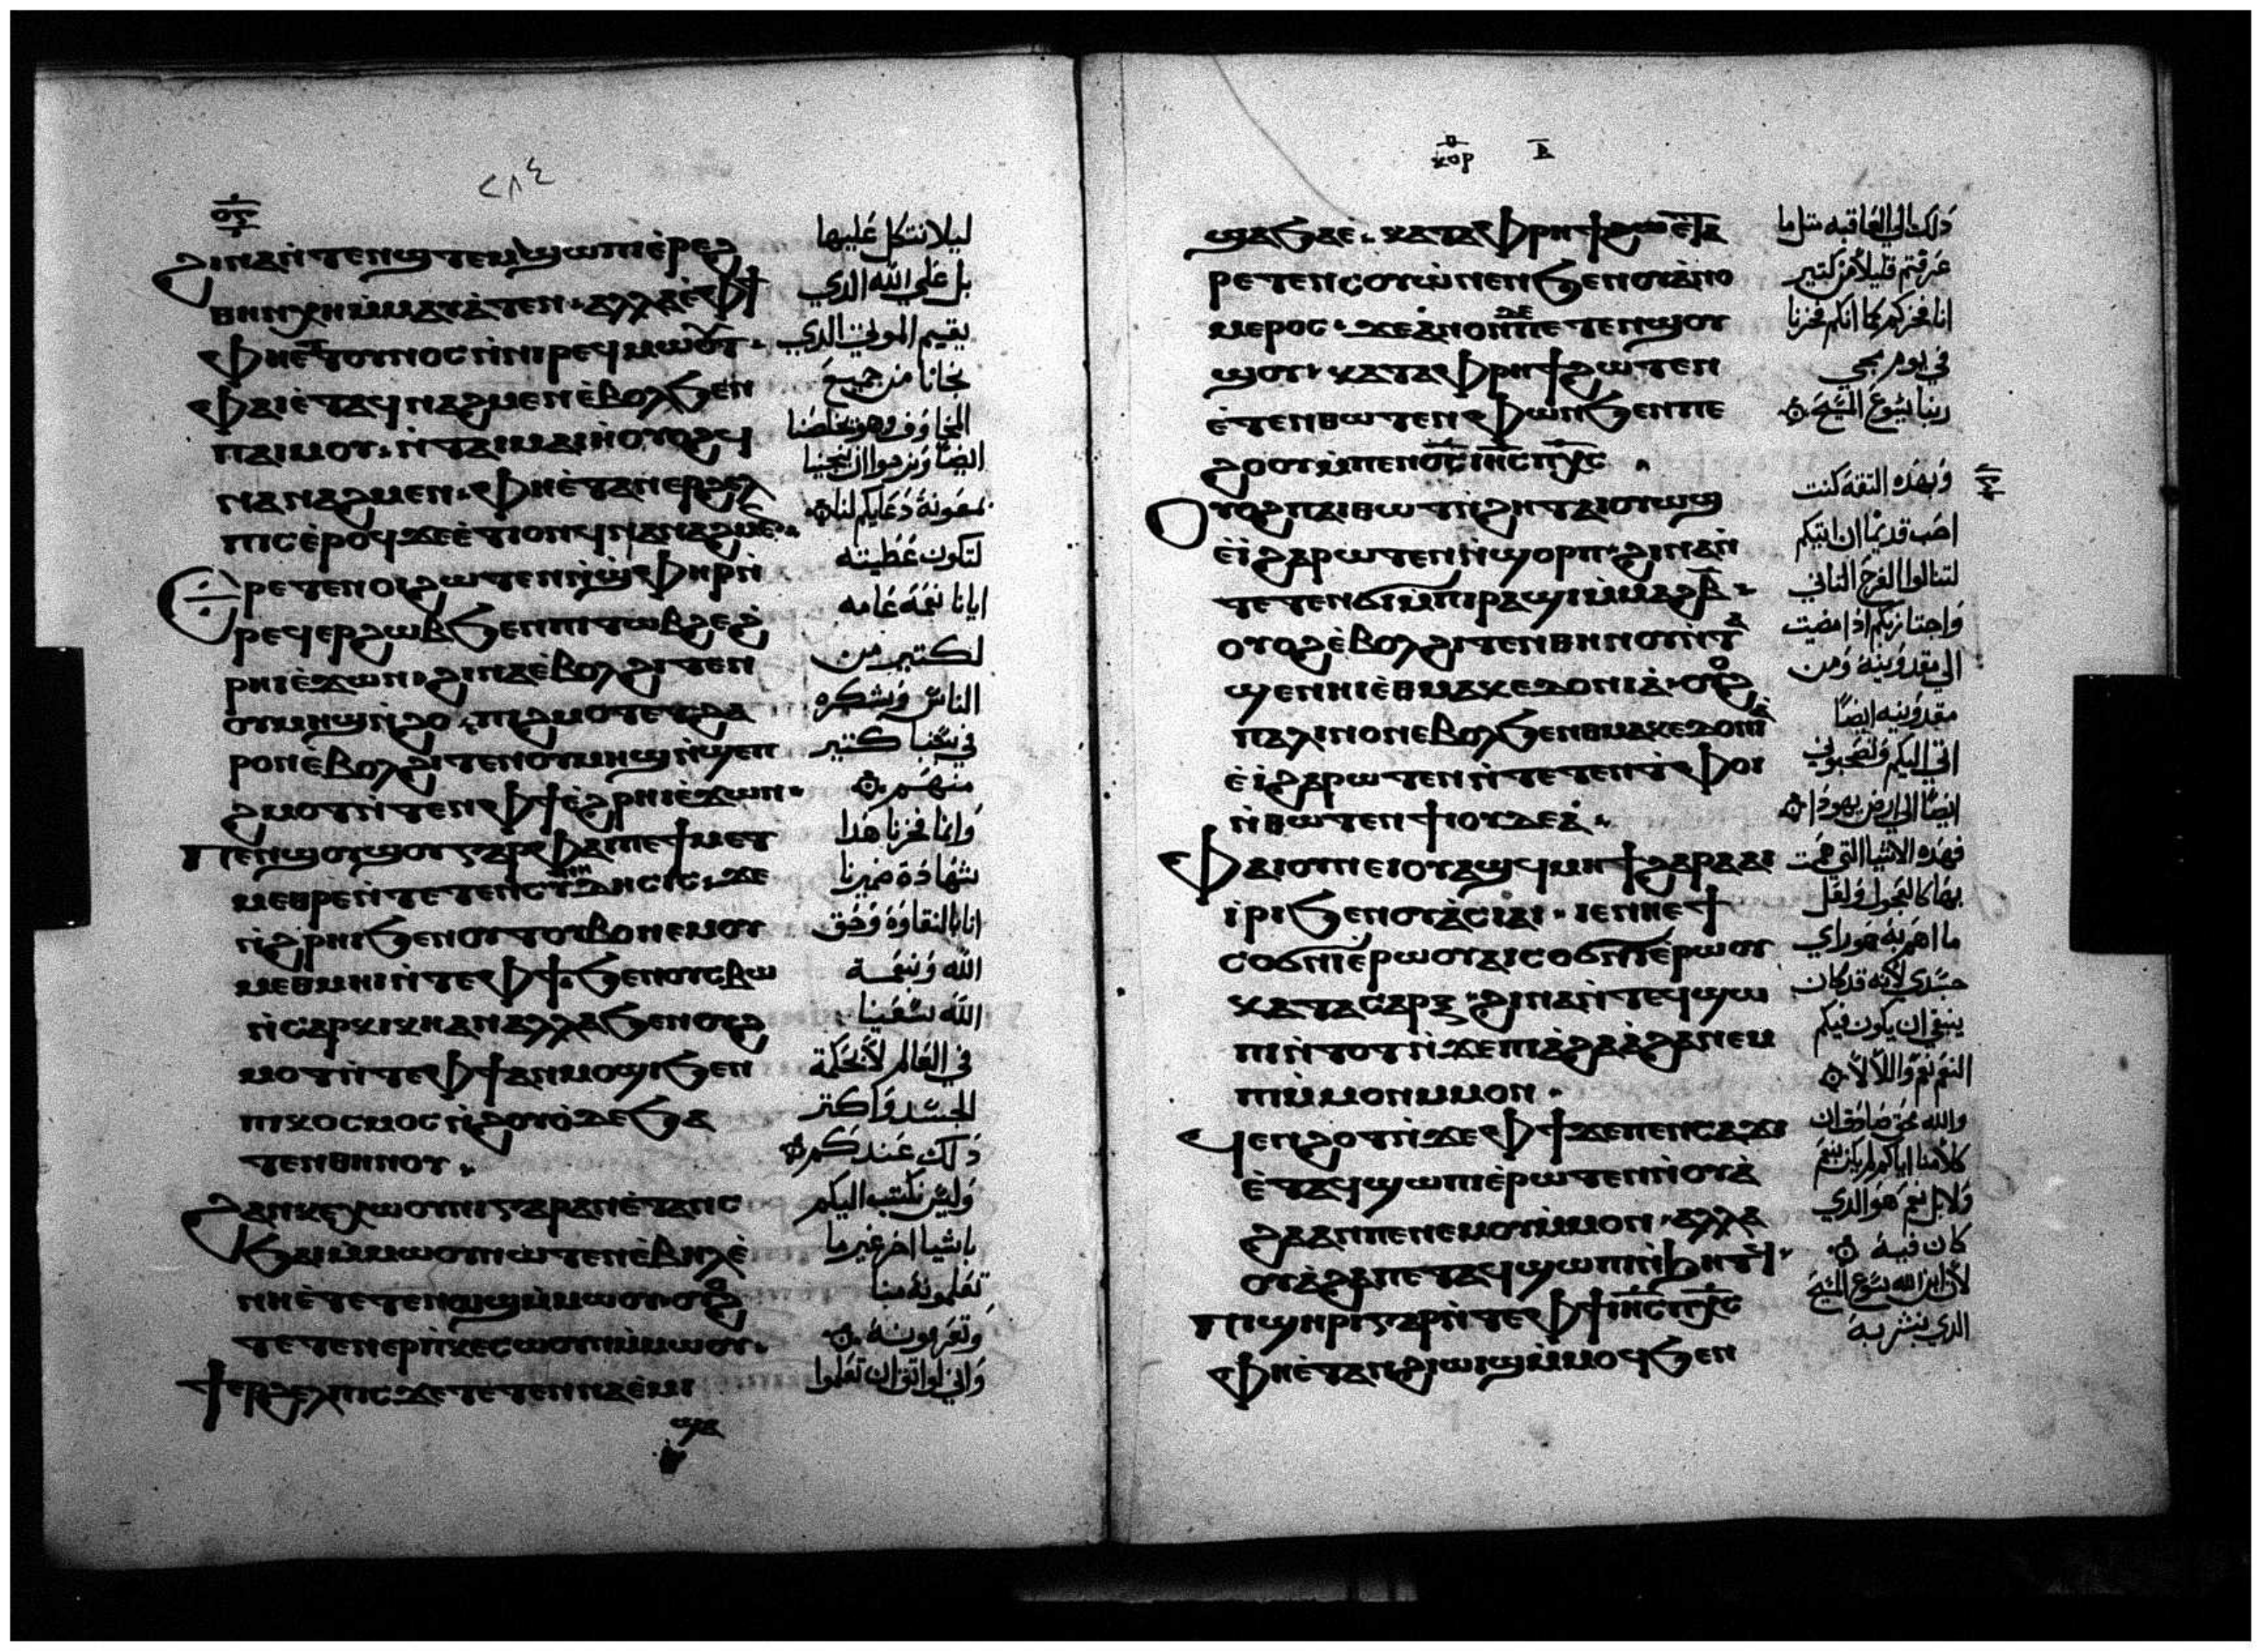 ٢٨٤
ϩⲓⲛⲁ ⲛ̀ⲧⲉⲛϣⲧⲉⲙϣⲱⲡⲓ ⲉ̀ⲣⲉϩ
ⲑⲏⲛ ⲭⲏ ⲙ̀ⲙⲁⲩⲁ̀ⲧⲉⲛ ⲁⲗⲗⲁ ⲉ̀ⲫϯ
ⲫⲏⲉⲧⲧⲟⲩⲛⲟⲥ ⲛ̀ⲛⲓⲣⲉϥⲙⲱⲟⲩⲧ
ⲫⲁⲓ ⲉ̀ⲧⲁϥⲛⲁϩⲙⲉⲛ ⲉ̀ⲃⲟⲗϧⲉⲛ
ⲡⲁⲓⲙⲟⲩ ⲛ̀ⲧⲁⲓⲙⲁⲓⲏ ⲟⲩⲟϩ ϥ
ⲛⲁⲛⲁϩⲙⲉⲛ ⲫⲏⲉ̀ⲧⲁⲛⲉⲣϩⲉⲗ
ⲡⲓⲥ ⲉ̀ⲣⲟϥ ϫⲉ ⲉ̀ⲧⲓ ⲟⲛ ϥⲛⲁⲛⲁϩⲙⲉⲛ
ⲉⲣⲉⲧⲉⲛⲟⲓ ϩⲱⲧⲉⲛ ⲛ̀ϣⲫⲏⲣ ⲛ̀
ⲣⲉϥⲉⲣϩⲱⲃ ϧⲉⲛ ⲡⲓⲧⲱⲃϩ ⲉϩ
ⲣⲏⲓ ⲉ̀ϫⲱⲛ ϩⲓⲛⲁ ⲉ̀ⲃⲟⲗϩⲓⲧⲉⲛ
ⲟⲩⲙⲏϣ ⲛ̀ϩⲟ ⲡⲓϩⲙⲟⲧ ⲉⲧϧⲁ
ⲣⲟⲛ ⲉ̀ⲃⲟⲗϩⲓⲧⲉⲛ ⲟⲩⲙⲏϣ ⲛ̀ϣⲉⲡ
ϩⲙⲟⲧ ⲛ̀ⲧⲉⲛ ⲫϯ ⲉ̀ϩⲣⲏⲓ ⲉ̀ϫⲱⲛ
ⲡⲉⲛϣⲟⲩϣⲟⲩ ⲅⲁⲣ ⲫⲁⲓ ⲡⲉ ϯⲙⲉⲧ
ⲙⲉⲑⲣⲉ ⲛ̀ⲧⲉ ⲧⲉⲛⲥⲩⲛⲏⲇⲏⲥⲓⲥ ϫⲉ
ⲛ̀ϩⲣⲏⲓ ϧⲉⲛ ⲟⲩⲧⲟⲩⲃⲟ ⲛⲉⲙ ⲟⲩ
ⲙⲉⲑⲙⲏⲓ ⲛ̀ⲧⲉ ⲫϯ ϧⲉⲛ ⲟⲩⲥⲃⲱ
ⲛ̀ⲥⲁⲣⲕⲓⲕⲏ ⲁⲛ ⲁⲗⲗⲁ ϧⲉⲛ ⲟⲩϩ
ⲙⲟⲧ ⲛ̀ⲧⲉ ⲫϯ ⲁⲛⲙⲟϣⲓ ϧⲉⲛ
ⲡⲓⲕⲟⲥⲙⲟⲥ ⲛ̀ϩⲟⲩⲟ̀ ⲇⲉ ϧⲁ
ⲧⲉⲛⲑⲏⲛⲟⲩ
ϩⲁⲛⲕⲉⲭⲱⲟⲩⲛⲓ ⲅⲁⲣ ⲁⲛ ⲉ̀ⲧⲁⲛⲥ
ϧⲁⲓ ⲙ̀ⲙⲱⲟⲩ ⲛⲱⲧⲉⲛ ⲉ̀ⲃⲏⲗ ⲉ̀
ⲛⲏⲉ̀ⲧⲉⲧⲉⲛⲱϣ ⲙ̀ⲙⲱⲟⲩ ⲟⲩⲟϩ
ⲧⲉⲧⲉⲛⲉⲣⲡ̀ⲕⲉⲥⲱⲟⲩⲛ ⲙ̀ⲙⲱⲟⲩ
ϯⲉⲣϩⲉⲗⲡⲓⲥ ϫⲉ ⲧⲉⲧⲉⲛⲛⲁⲉ̀ⲙⲓ
ϣⲁ
ليلا نتكل عليها
بل علي الله الدي
يقيم الموتي الدي
نجانا من جميع
المخاوف وهو يخلصنا
ايضا ونرجوا ان ينجينا
بمعونة دعايكم لنا
لتكون عطيته
ايانا نعمه عامه
لكتير من
الناس ونشكره
في سببنا كتير
منهم
وانما فخرنا هدا
شهادة ضميرنا
انا بالنقاوة وحق
الله ونعمة
الله سعينا
في العالم لا بحكمة
الجسد واكتر
دلك عندكم
وليس نكتب اليكم
باشيا اخر غير ما
تعلمونه بنا
وتعرفونه
واني لواتق ان تعلموا
ⲕⲟⲣ ⲃ
ϣⲁ ϧⲁⲉ̀ ⲕⲁⲧⲁ ⲫⲣⲏϯ ϩⲱϥ ⲉ̀ⲧⲁ
ⲣⲉⲧⲉⲛⲥⲟⲩⲱⲛⲉⲛ ϧⲉⲛ ⲟⲩⲁ̀ⲡⲟ
ⲙⲉⲣⲟⲥ ϫⲉ ⲁ̀ⲛⲟⲛ ⲡⲉ ⲡⲉⲧⲉⲛϣⲟⲩ
ϣⲟⲩ ⲕⲁⲧⲁ ⲫⲣⲏϯ ϩⲱⲧⲉⲛ
ⲉ̀ⲧⲉⲛⲑⲱⲧⲉⲛ ⲫⲱⲛ ϧⲉⲛ ⲡⲉ
ϩⲟⲟⲩ ⲙ̀ⲡⲉⲛⲟ̅ⲥ̅ ⲓⲏ̅ⲥ̅ ⲡⲭ̅ⲥ̅
ⲟⲩⲟϩ ⲡⲁⲓⲑⲱⲧ ⲛ̀ϩⲏⲧ ⲁⲓⲟⲩⲱϣ
ⲉ̀ⲓ̀ ϩⲁⲣⲱⲧⲉⲛ ⲛ̀ϣⲟⲣⲡ ϩⲓⲛⲁ ⲛ̀
ⲧⲉⲧⲉⲛϭⲓ ⲙ̀ⲡⲓⲣⲁϣⲓ ⲙ̀ⲙⲁϩⲃ̅
ⲟⲩⲟϩ ⲉ̀ⲃⲟⲗϩⲓⲧⲉⲛ ⲑⲏⲛⲟⲩ ⲛ̀ⲧⲁ
ϣⲉⲛⲏⲓ ⲉ̀ⲑⲙⲁⲕⲉⲇⲟⲛⲓⲁ̀ ⲟⲩⲟϩ
ⲡⲁⲗⲓⲛ ⲟⲛ ⲉⲃⲟⲗϧⲉⲛ ⲑⲙⲁⲕⲉⲇⲟⲛⲓⲁ̀
ⲉ̀ⲓ̀ ϩⲁⲣⲱⲧⲉⲛ ⲛ̀ⲧⲉⲧⲉⲛⲧ̀ⲫⲟⲓ
ⲛ̀ⲑⲱⲧⲉⲛ ϯⲓⲟⲩⲇⲉⲁ̀
ⲫⲁⲓ ⲟⲩⲛ ⲉⲓⲟⲩⲁϣϥ ⲙⲏϯ ϩⲁⲣⲁ ⲁⲓ
ⲓ̀ⲣⲓ ϧⲉⲛ ⲟⲩⲁ̀ⲥⲓⲁⲓ ⲓⲉ ⲛⲏⲉϯ
ⲥⲟϭⲛⲓ ⲉ̀ⲣⲱⲟⲩ ⲁⲓⲥⲟϭⲛⲓ ⲉ̀ⲣⲱⲟⲩ
ⲕⲁⲧⲁ ⲥⲁⲣⲝ ϩⲓⲛⲁ ⲛ̀ⲧⲉϥϣⲱ
ⲡⲓ ⲛ̀ⲧⲟⲧ ⲛ̀ϫⲉ ⲡⲓⲁ̀ϩⲁ ⲁ̀ϩⲁ ⲛⲉⲙ
ⲡⲓⲙ̀ⲙⲟⲛ ⲙⲙⲟⲛ
ϥⲉⲛϩⲟⲧ ⲛ̀ϫⲉ ⲫϯ ϫⲉ ⲡⲉⲛⲥⲁϫⲓ
ⲉ̀ⲧⲁϥϣⲱⲡⲓ ⲉ̀ⲣⲱⲧⲉⲛ ⲛ̀ⲟⲩⲁ̀
ϩⲁ ⲁⲛ ⲡⲉ ⲛⲉⲙ ⲟⲩⲙ̀ⲙⲟⲛ ⲁⲗⲗⲁ
ⲟⲩⲁ̀ϩⲁ ⲡⲉⲧⲁϥϣⲱⲡⲓ ⲛ̀ϧⲏⲧϥ
ⲡϣⲏⲣⲓ ⲅⲁⲣ ⲛ̀ⲧⲉ ⲫϯ ⲓⲏ̅ⲥ̅ ⲡⲭ̅ⲥ̅
ⲫⲏⲉ̀ⲧⲁⲛϩⲓⲱⲓϣ ⲙ̀ⲙⲟϥ ϧⲉⲛ
دلك الي العاقبه متل ما
عرفتم قليلا من كتير
انا فخركم كما انكم فخرنا
في يوم مجي
ربنا يسوع المسيح
وبهده التقه كنت
احب قديما ان اتيكم
لتنالوا الفرح التاني
واجتاز بكم ادا مضيت
الي مقدونيه ومن
مقدونيه ايضا
اتي اليكم وتصحبوني
ايضا الي ارض يهودا
فهده الاشيا التي هممت
بها كالعجول ولعل
ما اهم به هو راي
جسدي لانه قد كان
ينبغي ان يكون فيكم
النعم نعم واللا لا
والله محق صادق ان
كلامنا اياكم لم يكن نعم
ولا بل نعم هو الدي
كان فيه
لان ابن الله يسوع المسيح
الدي نبشر به